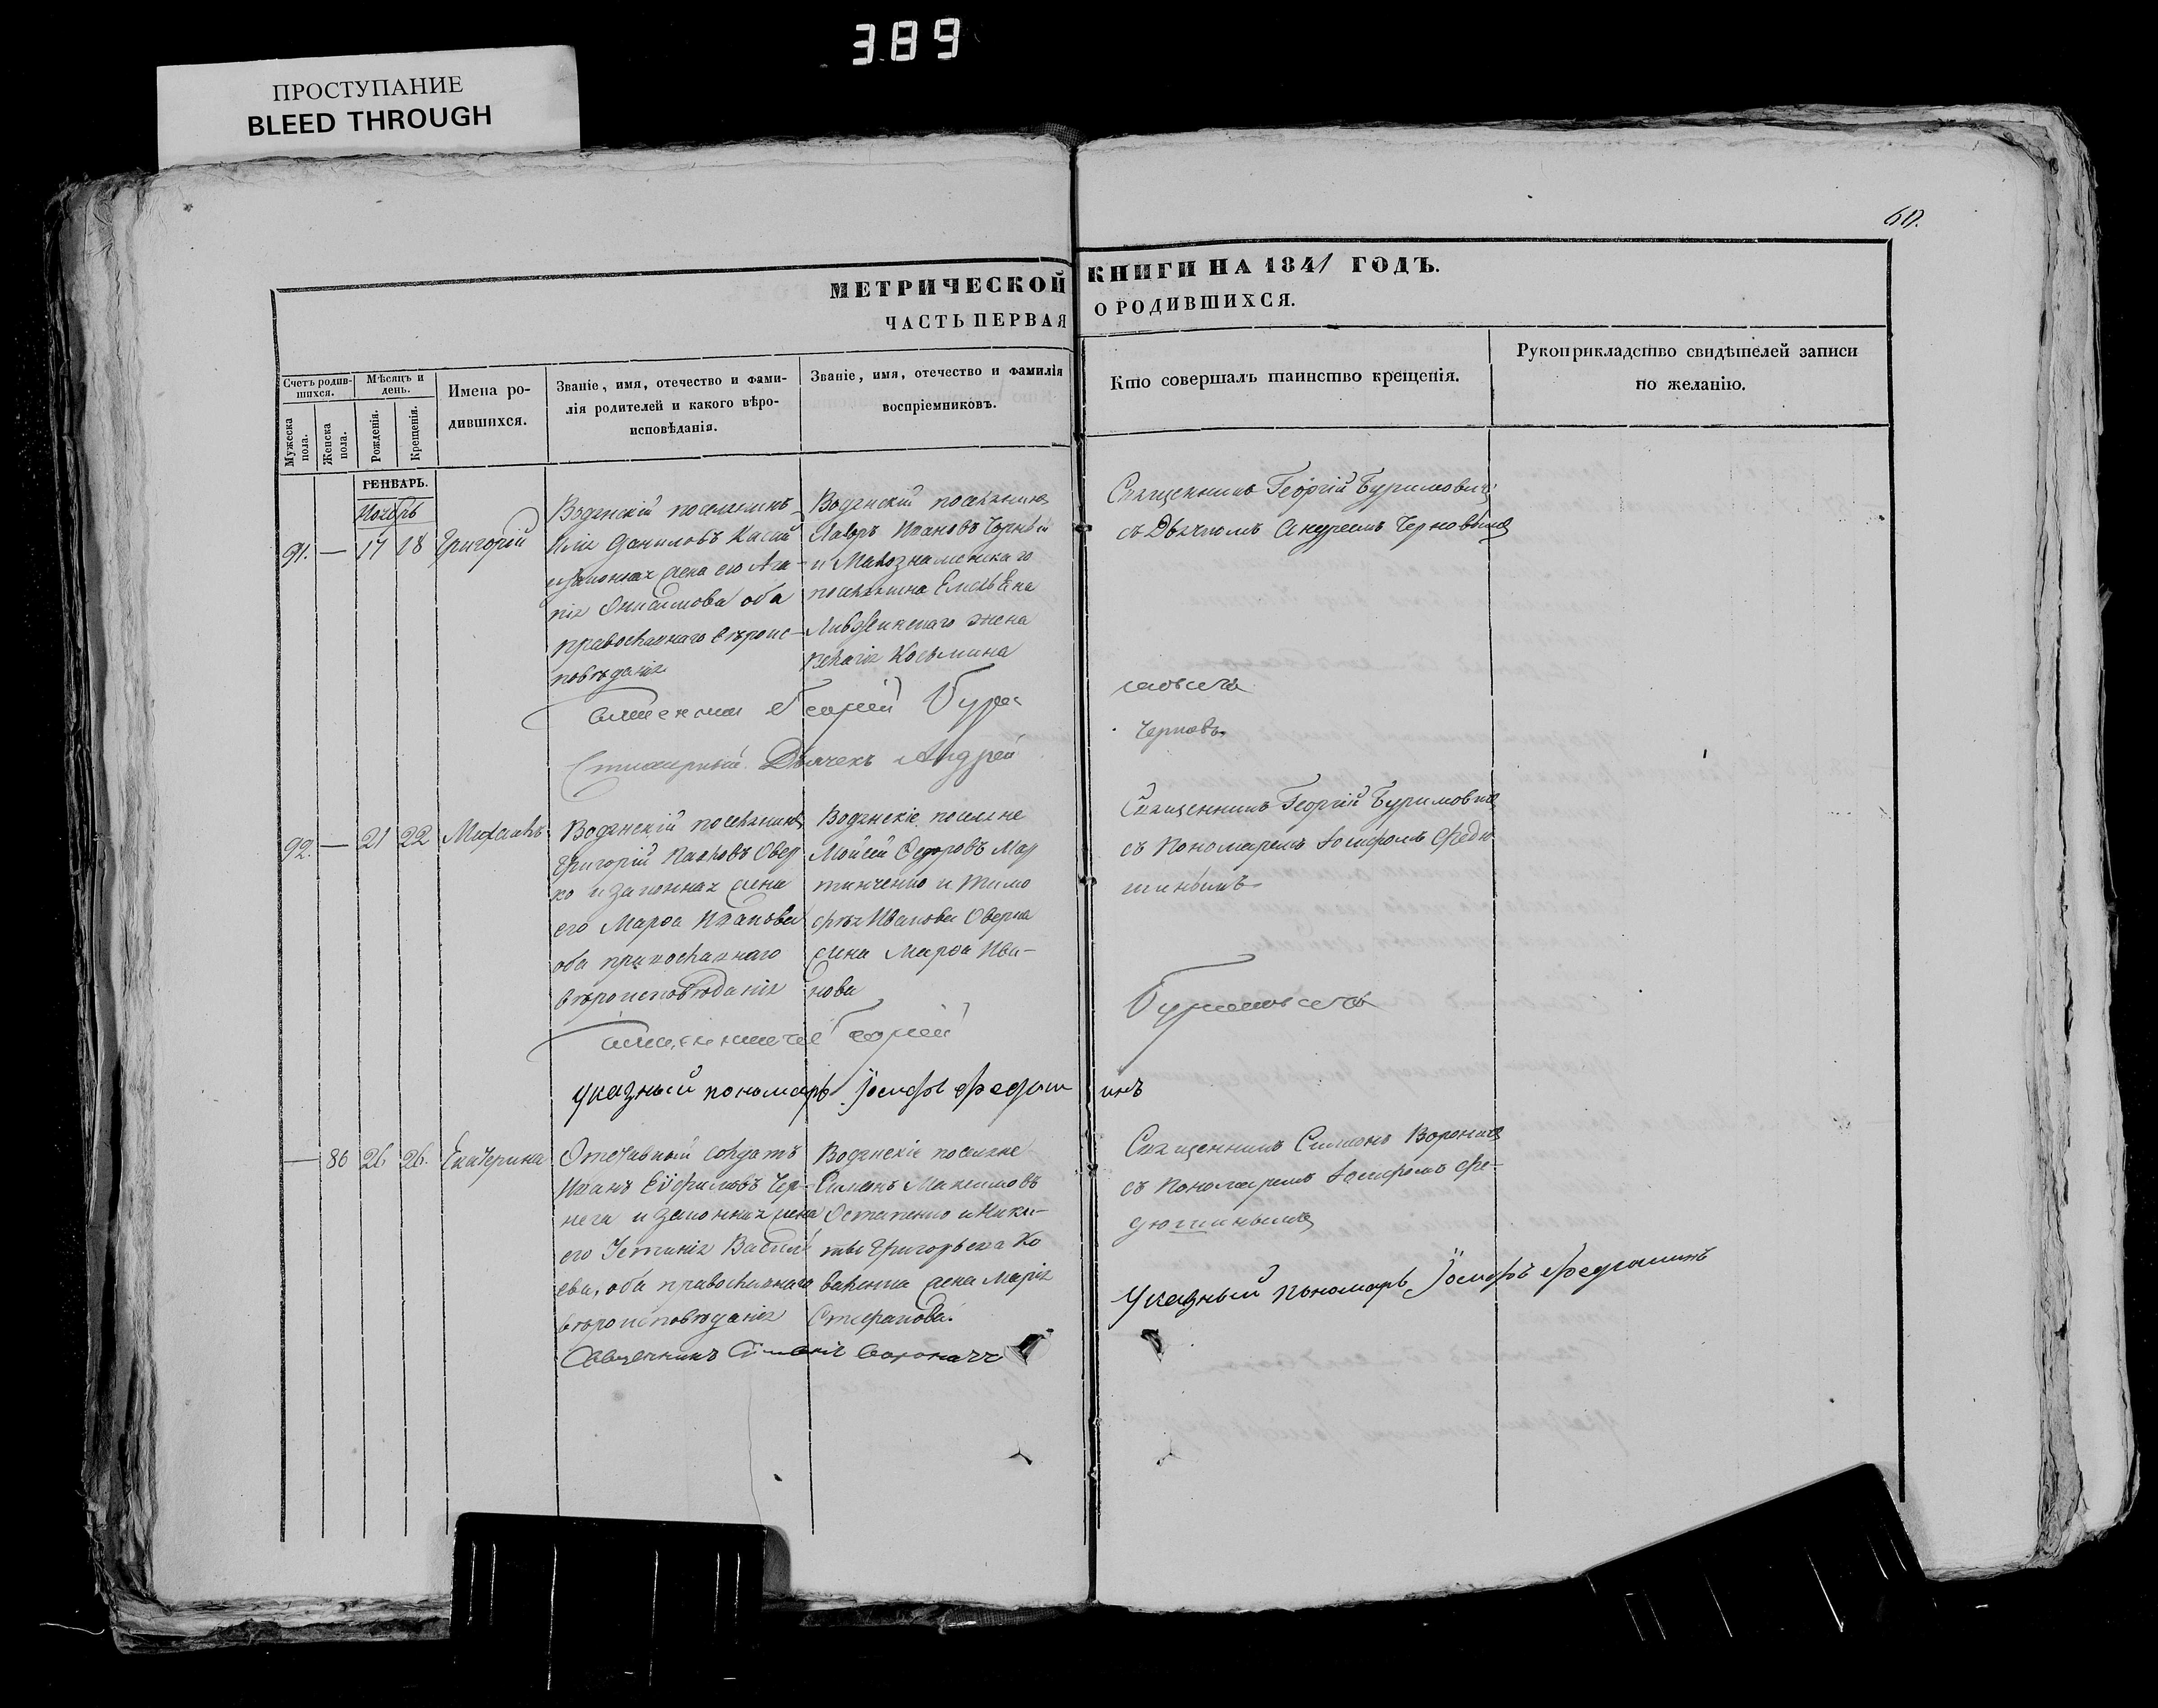 389
ПРОСТУПАНИЕ
BLEED THROUGH
60.
МЕТРИЧЕСКОЙ КНИГИ НА 1841 ГОДЪ.
ЧАСТЬ ПЕРВАЯ О РОДИВШИХСЯ.
Счетъ родившихся.
Мужеска пола.
Женска пола.
Мѣсяцъ и день.
Рожденія.
Крещенія.
Имена родившихся.
Званіе, имя, отечество и фами-
лія родителей и какого вѣро-
исповѣданія.
Званіе, имя, отечество и фамилія
воспріемниковъ.
Кто совершалъ таинство крещенія.
Рукоприкладство свидѣтелей записи
по желанію.
ГЕНВАРЬ.
Ноябрь
91. — 17 18 Григорій
Водянскій поселянинъ
Илія Даниловъ
и законная жена его Ага-
пія Онисимова оба
православнаго вѣроис-
повѣданія
Водянскій поселянинъ
Лавръ Ивановъ Чорный
и Малознаменскаго
поселянина Емельяна
жена
Пелагія Косьмина
Священникъ Георгій Буримовичъ
съ Дьячкомъ Андреемъ Черновымъ
Священникъ Георгій Бури-
мовичъ
Стихарный Дьячекъ Андрей
Черновъ
92. — 21 22 Михаилъ
Водянскій поселянинъ
Григорій Павловъ Овер
ко и законная жена
его Марѳа Иванова
оба православнаго
вѣроисповѣданія
Водянскіе поселяне
Мойсей Ѳедоровъ Мар
тинченко и Тимо
фѣя Иванова Оверка
жена Марѳа Ива-
нова
Священникъ Георгій Буримовичъ
съ Пономаремъ Іосифомъ Федю
шинымъ
Священникъ Георгій
Буримовичъ
Указный пономарь Іосифъ Федюш
инъ
— 86 26 26. Екатерина
Отставный солдатъ
Иванъ Евфимовъ Чер-
нега и законная жена
его Устинія Василі
ева, оба православнаго
вѣроисповѣданія
Водянскіе поселяне
Симонъ Максимовъ
Остапенко и Ники-
ты Григорьева Ко
валенка жена Марія
Стефанова.
Священникъ Симеонъ Вороничъ
съ Пономаремъ Іосифомъ Фе-
дюшинымъ
Указный Пономарь Іосифъ Федюшинъ
Священникъ Симеонъ Вороничъ